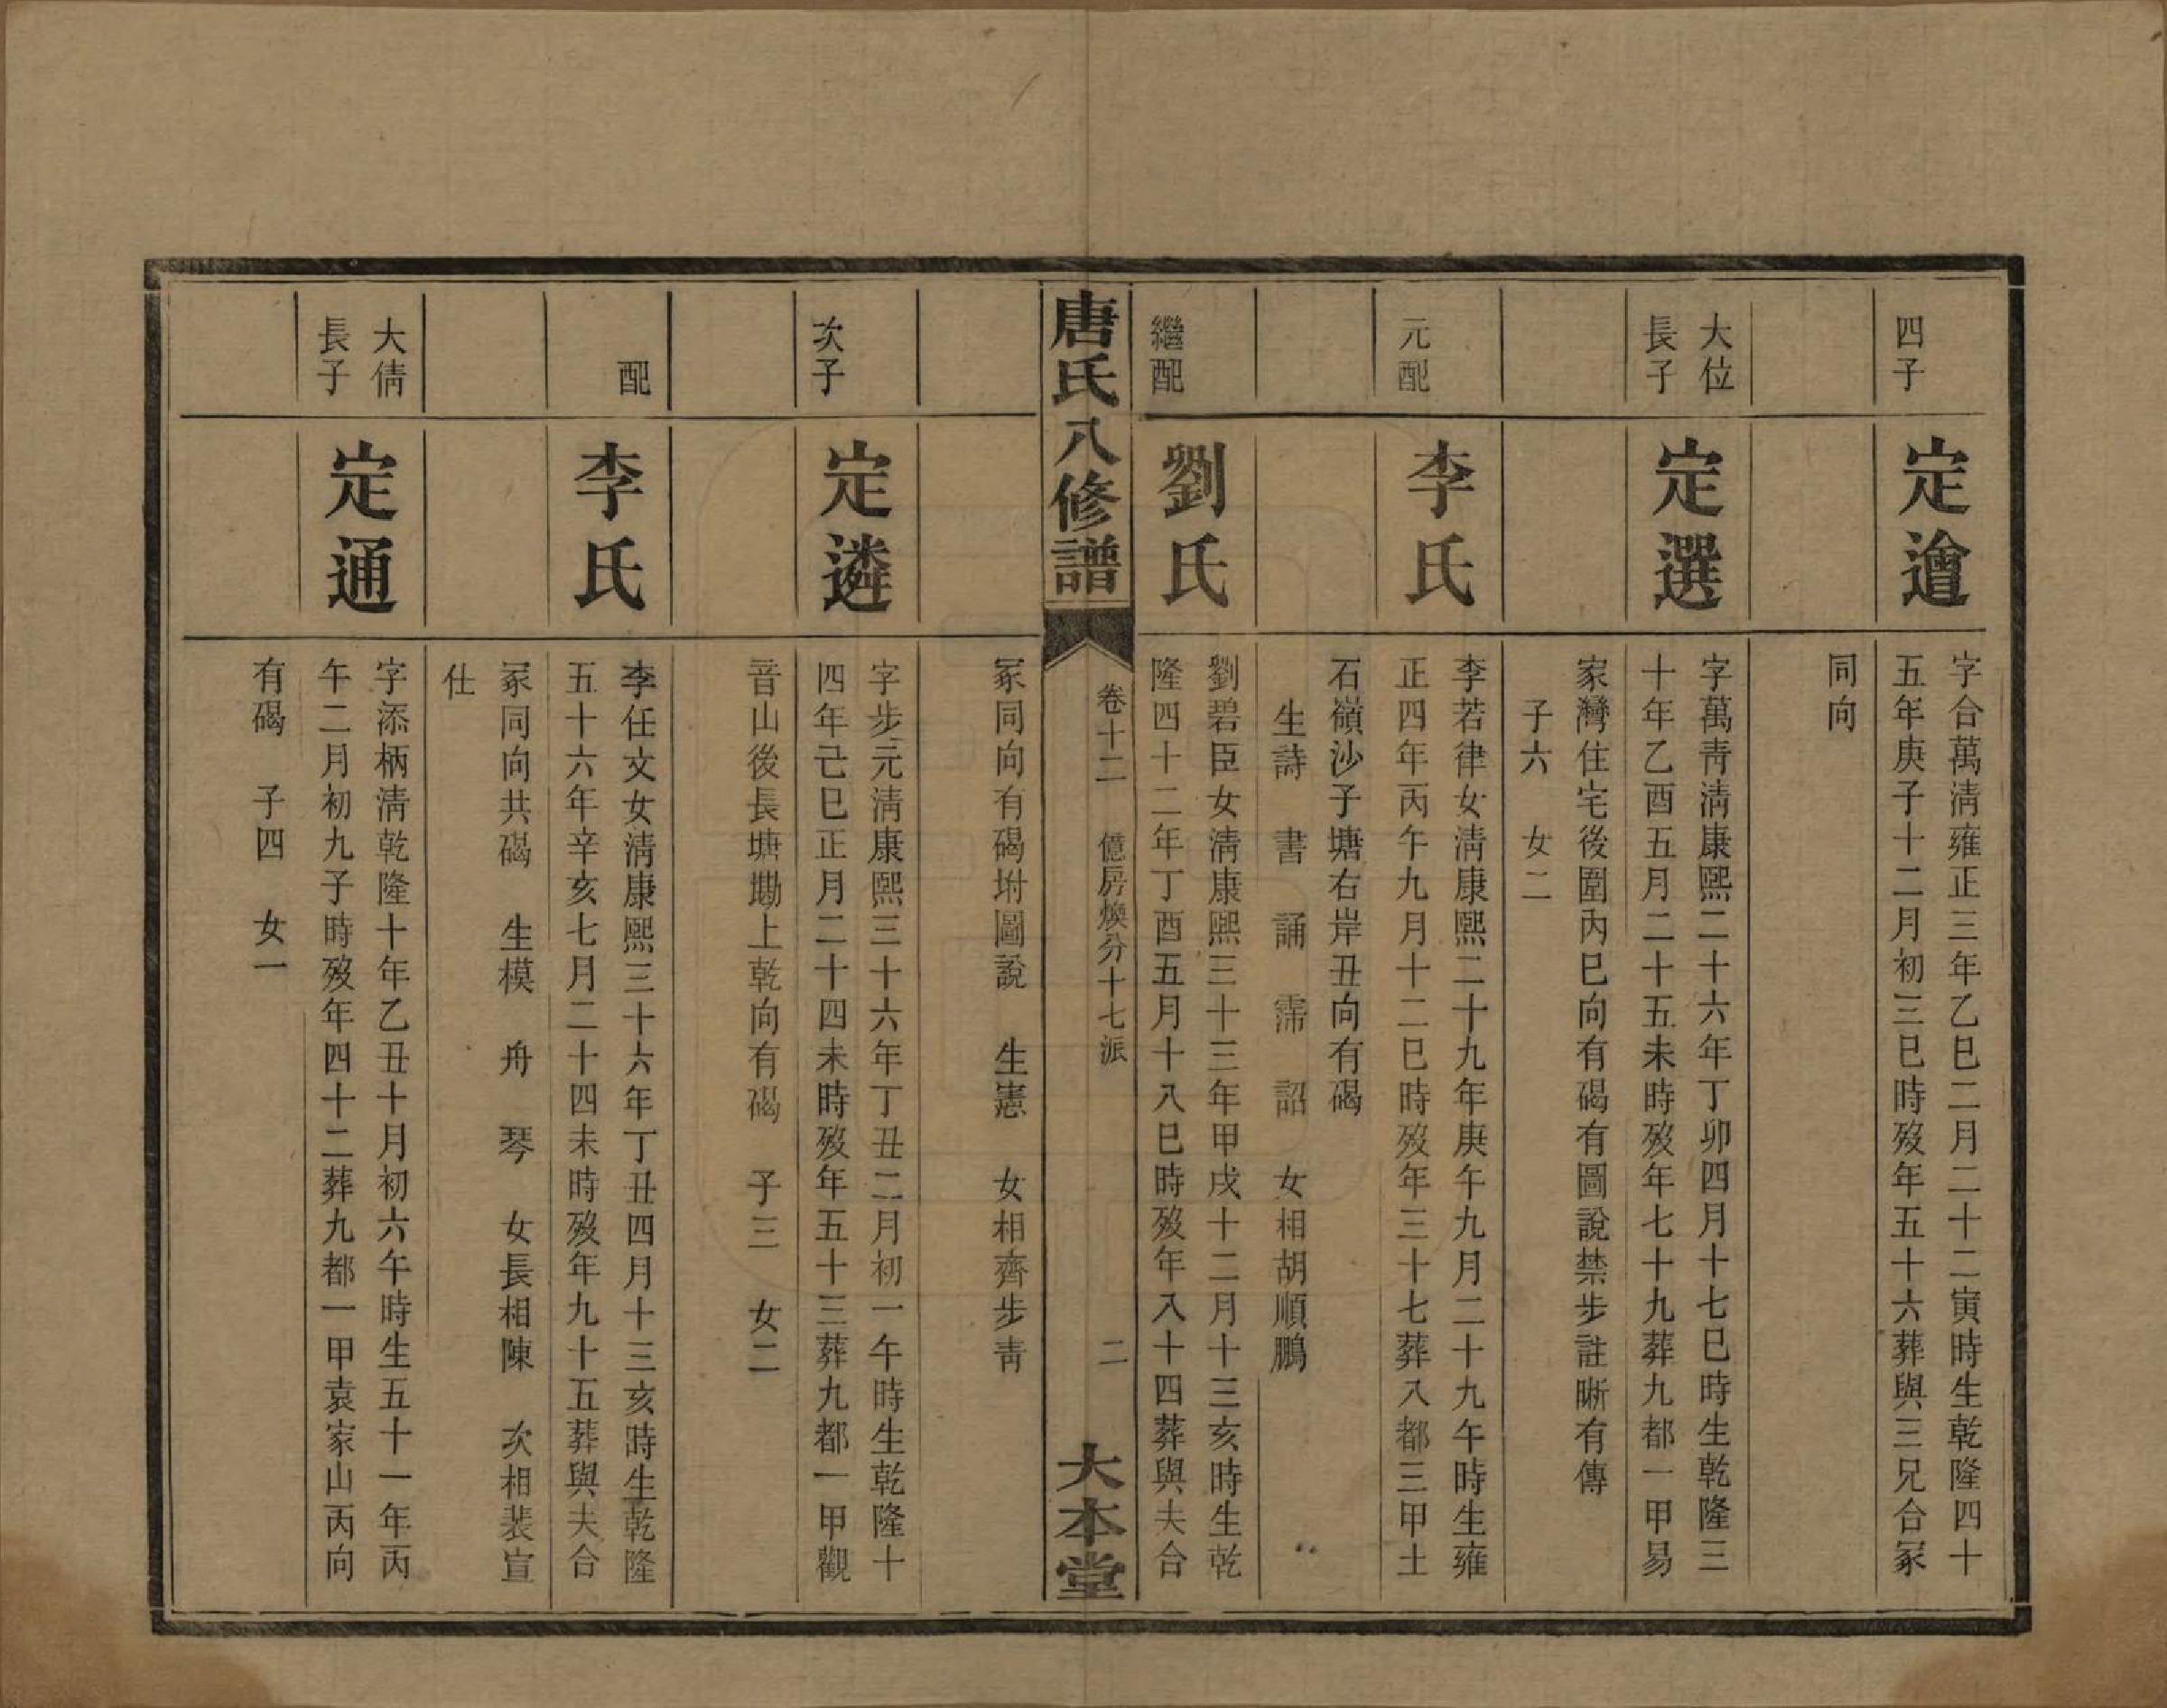 四子
定譮
字合萬淸雍正三年乙巳二月二十二寅時生乾隆四十
五年庚子十二月初三巳時歿年五十六葬與三兄合冢
同向
大位
長子
定選
字萬靑淸康熙二十六年丁卯四月十七巳時生乾隆三
十年乙酉五月二十五未時歿年七十九葬九都一甲易
家灣住宅後圍內巳向有碣有圖說禁步註晣有傳
子六 女二
元配
李氏
李若律女淸康熙二十九年庚午九月二十九午時生雍
正四年丙午九月十二巳時歿年三十七葬八都三甲土
石嶺沙子塘右岸丑向有碣
生詩 書 誦 霈 詔 女相胡順鵬
繼配
劉氏
劉碧臣女淸康熙三十三年甲戌十二月十三亥時生乾
隆四十二年丁酉五月十八巳時歿年八十四葬與夫合
唐氏八修譜
卷十二 億房煥分十七派 二
大本堂
冢同向有碣坿圖說 生憲 女相齊步靑
次子
定遴
字步元淸康熙三十六年丁丑二月初一午時生乾隆十
四年己巳正月二十四未時歿年五十三葬九都一甲觀
音山後長塘墈上乾向有碣 子三 女二
配
李氏
李任文女淸康熙三十六年丁丑四月十三亥時生乾隆
五十六年辛亥七月二十四未時歿年九十五葬與夫合
冢同向共碣 生模 舟 琴 女長相陳 次相裴宣
仕
大倩
長子
定通
字添柄淸乾隆十年乙丑十月初六午時生五十一年丙
午二月初九子時歿年四十二葬九都一甲袁家山丙向
有碣 子四 女一